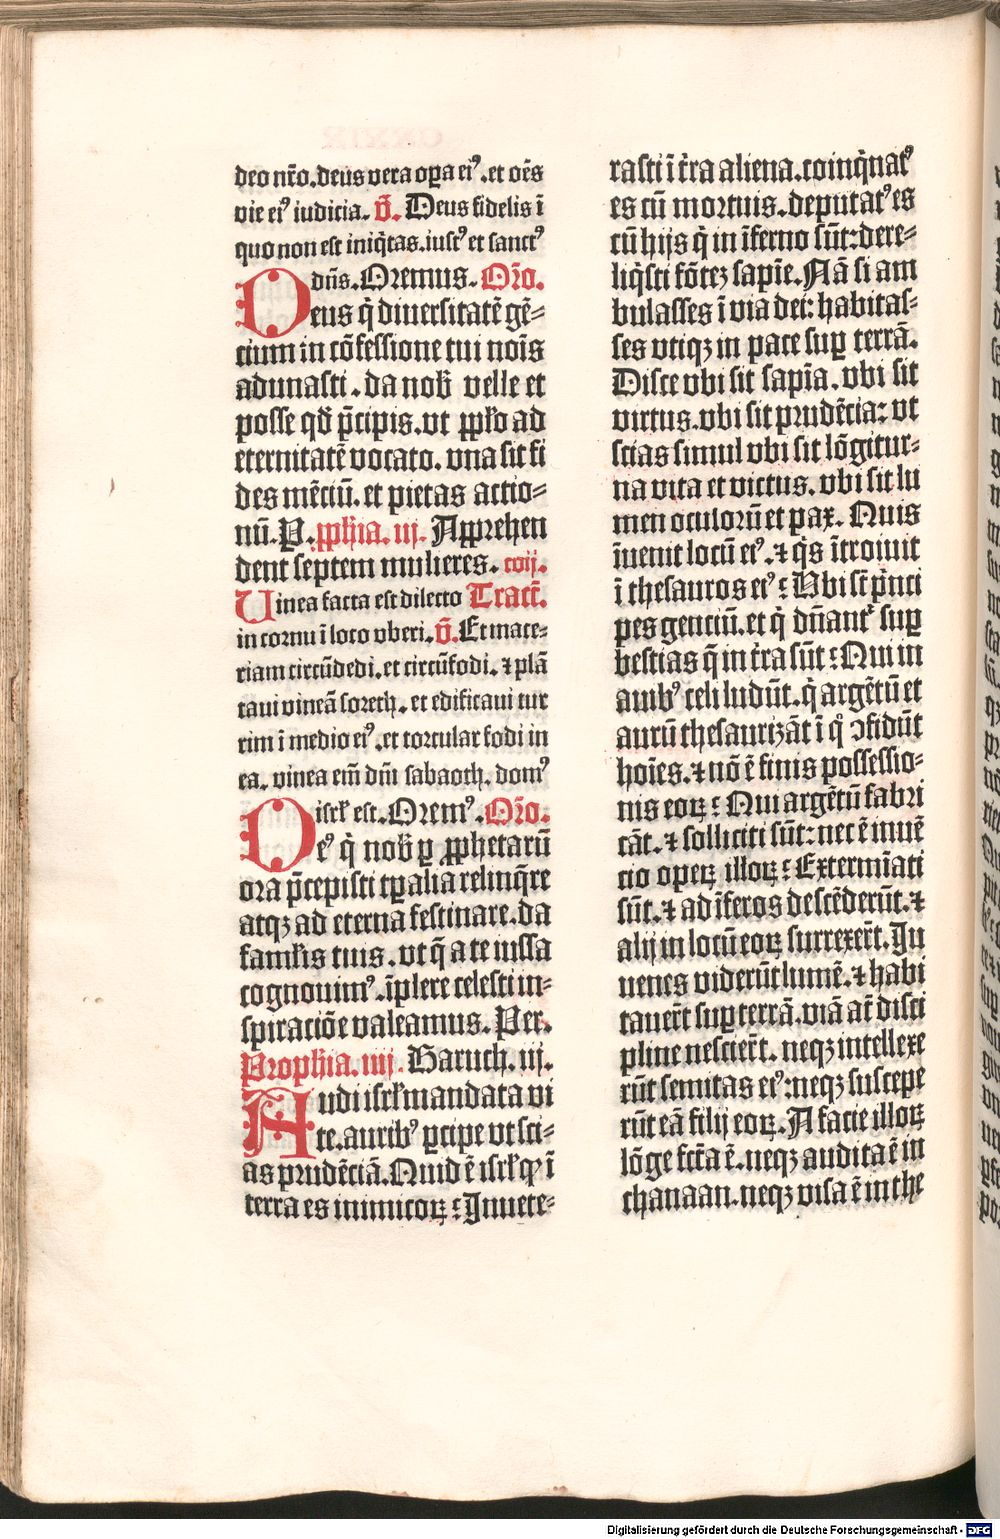 deo nr̃o. deus vera oꝑa eiꝰ. et oẽs
vie eiꝰ iudicia. v̄. Deus fidelis ĩ
quo non est iniq̃tas. iustꝰ et sanctꝰ
dñs. Oremus. Or̃o.
Deus q̃ diuersitatẽ gẽ-
cium in cõfessione tui noĩs
adunasti. da nob̃ velle et
posse qđ p̃cipis. vt ꝓp̃lo ad
eternitatẽ vocato. vna sit fi
des mẽciũ. et pietas actio-
nũ. P. ꝓph̃ia. iij. Apprehen
dent septem mulieres. coij.
Uinea facta est dilecto Tract̃.
in cornu ĩ loco vberi. v̄. Et mace-
riam circũdedi. et circũfodi. ⁊ plã
taui vineã soreth. et edificaui tur
rim ĩ medio eiꝰ. et torcular fodi in
ea. vinea em̃ dñi sabaoth. domꝰ
isrl̃ est. Oremꝰ. Or̃o.
Deꝰ q̃ nob̃ ꝑ ꝓphetarũ
ora p̃cepisti tꝑalia relinq̃re
atqꝫ ad eterna festinare. da
famul̃is tuis. vt q̃ a te iussa
cognouimꝰ. ĩplere celesti in-
spiraciõe valeamus. Per.
Proph̃ia. iiij. Baruch. iij.
Audi isrl̃ mandata vi
te. auribꝰ ꝑcipe vt sci-
as prudẽciã. Quid ẽ isrl̃ qꝙ ĩ
terra es inimicoꝝ: Inuete-
rasti ĩ t̃ra aliena. coinq̃natꝰ
es cũ mortuis. deputatꝰ es
cũ hijs q̃ in ĩferno sũt: dere-
liq̃sti fõteꝫ sapĩe. Nã si am
bulasses ĩ via dei: habitas-
ses vtiqꝫ in pace suꝑ terrã.
Disce vbi sit sapĩa. vbi sit
virtus. vbi sit prudẽcia: vt
scias simul vbi sit lõgitur-
na vita et victus. vbi sit lu
men oculorũ et pax. Quis
ĩuenit locũ eiꝰ. ⁊ q̃s ĩtrouit
ĩ thesauros eiꝰ: Vbi sũt p̃nci
pes genciũ. et q̃ dñant̃ suꝑ
bestias q̃ in t̃ra sũt: Qui in
auibꝰ celi ludũt. q̃ argẽtũ et
aurũ thesaurizãt ĩ q̊ ꝯfidũt
hoĩes. ⁊ nõ ẽ finis possessio-
nis eoꝝ: Qui argẽtũ fabri
cãt. ⁊ solliciti sũt: nec ẽ inuẽ
cio operꝝ illoꝝ: Extermĩati
sũt. ⁊ ad ĩferos descẽderũt. ⁊
alij in locũ eoꝝ surrexer̃t. Iu
uenes viderũt lumẽ. ⁊ habi
tauer̃t suꝑ terrã. viã at̃ disci
pline nescier̃t. neqꝫ intellexe
rũt semitas eiꝰ: neqꝫ suscepe
rũt eã filij eoꝝ. A facie illoꝝ
lõge fct̃a ẽ. neqꝫ audita ẽ in
chanaan. neqꝫ visa ẽ in the
Digitalisierung gefördert durch die Deutsche Forschungsgemeinschaft - DFG